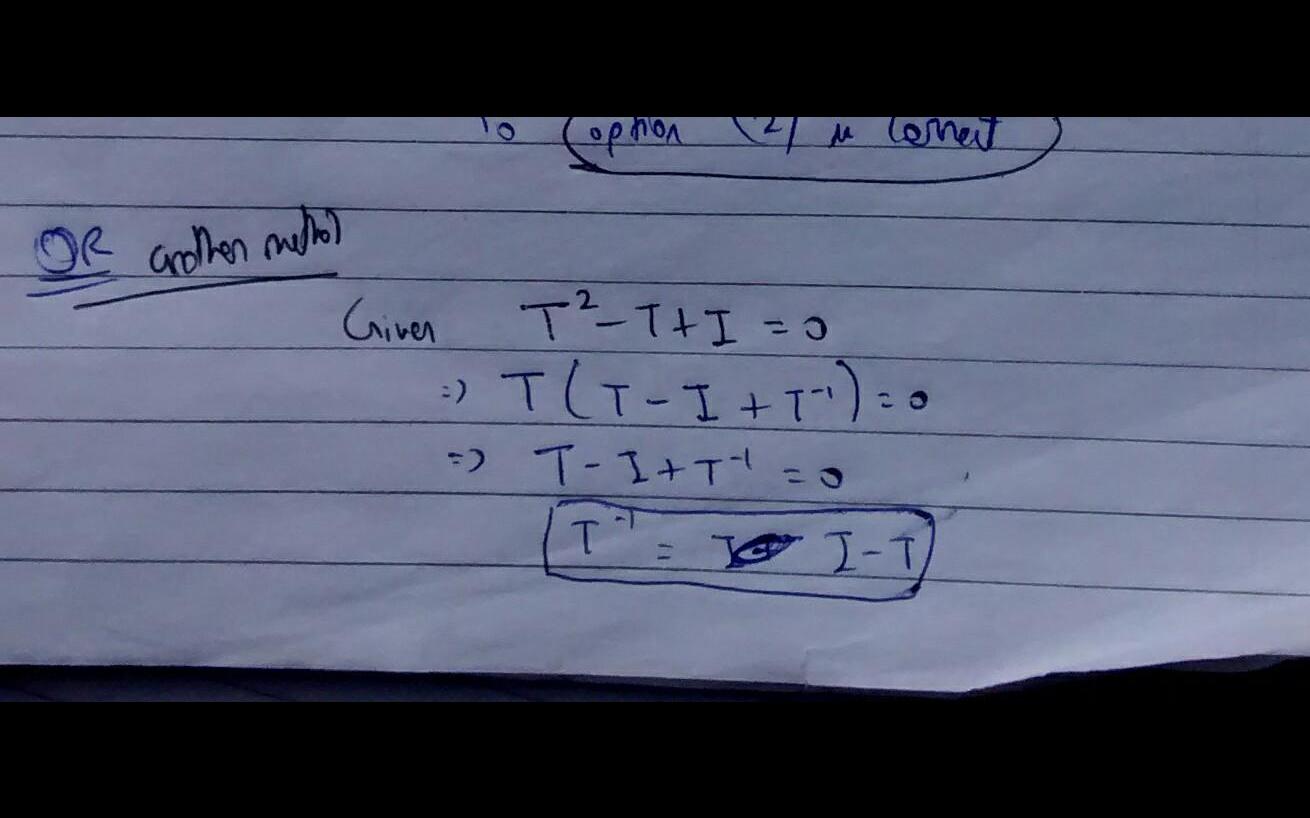 option (2) is correct
OR another method
Given T² - T + I = 0
=> T(T - I + T⁻¹) = 0
=> T - I + T⁻¹ = 0
T⁻¹ = I - T